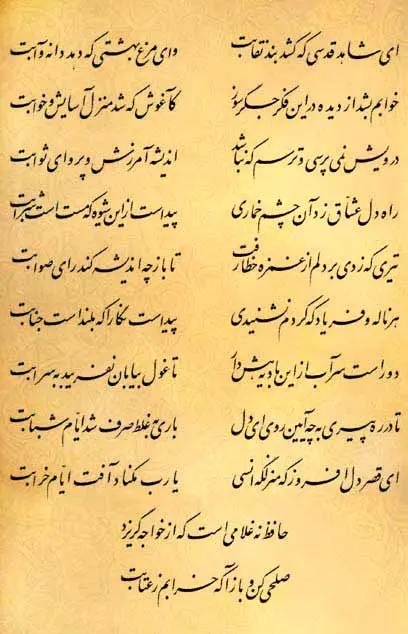 ای شاهد قدسی که کشد بند نقابت وای مرغ بهشتی که دهد دانه و آبت
خوابم بشد از دیده در این فکر جگرسوز کآغوش که شد منزل آسایش و خوابت
درویش نمی پرسی و ترسم که نباشد اندیشه آمرزش و پروای ثوابت
راه دل عشاق زد آن چشم خماری پیداست ازین شیوه که مست است شرابت
تیری که زدی بر دلم از غمزه خطا رفت تا باز چه اندیشه کند رای صوابت
هر ناله و فریاد که کردم نشنیدی پیداست نگارا که بلند است جنابت
دور است سر آب از این بادیه هش دار تا غول بیابان نفریبد به سرابت
تا در ره پیری به چه آیین روی ای دل باری به غلط صرف شد ایّام شبابت
ای قصر دل افروز که منزلگه انسی یا رب مکناد آفت ایّام خرابت
حافظ نه غلامی است که از خواجه گریزد
صلحی کن و بازآ که خرابم ز عتابت